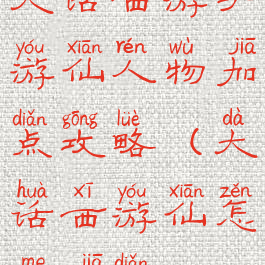 大话西游手
yóu xiān rén wù jiā
游仙人物加
diǎn gōng lüè dà
点攻略（大
huà xī yóu xiān zěn
话西游仙怎
me jiā diǎn